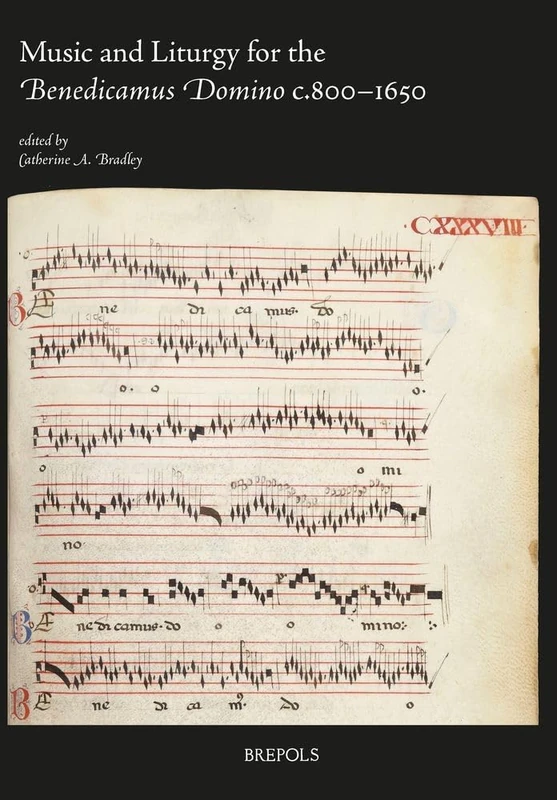 Music and Liturgy for the
Benedicamus Domino c.800–1650
edited by
Catherine A. Bradley
CXXXVIII
BE ne di ca mus. do
o. o o.
o o mi
no.
BE ne di camus. do o o mino:
BE ne di ca do o
BREPOLS